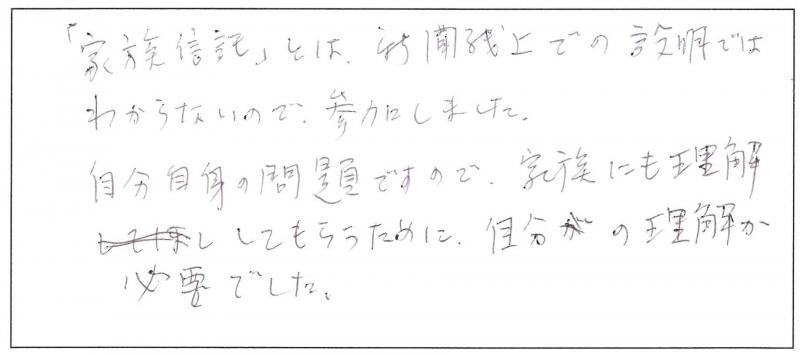 「家族信託」とは、新聞残上での説明では
わからないので、参加しました。
自分自身の問題ですので、家族にも理解
してもらうために、自分の理解が
必要でした。